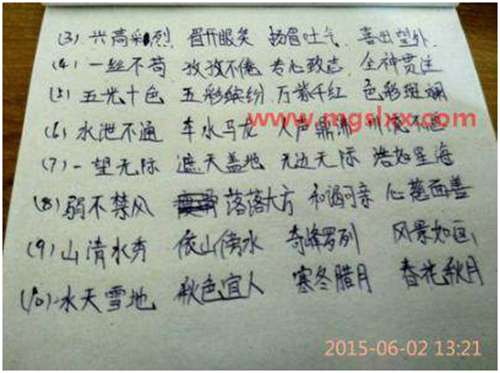 (3) 兴高彩烈 眉开眼笑 扬眉吐气 喜出望外
(4) 一丝不苟 孜孜不倦 专心致志 全神贯注
(5) 五光十色 五彩缤纷 万紫千红 色彩斑斓
www.mgslxx.com
(6) 水泄不通 车水马龙 人声鼎沸
(7) 一望无际 遮天盖地 无边无际 浩如星海
(8) 弱不禁风 落落大方 和谒可亲 心慈面善
(9) 山清水秀 依山傍水 奇峰罗列 风景如画
(10) 水天雪地 秋色宜人 寒冬腊月 春花秋月
2015-06-02 13:21